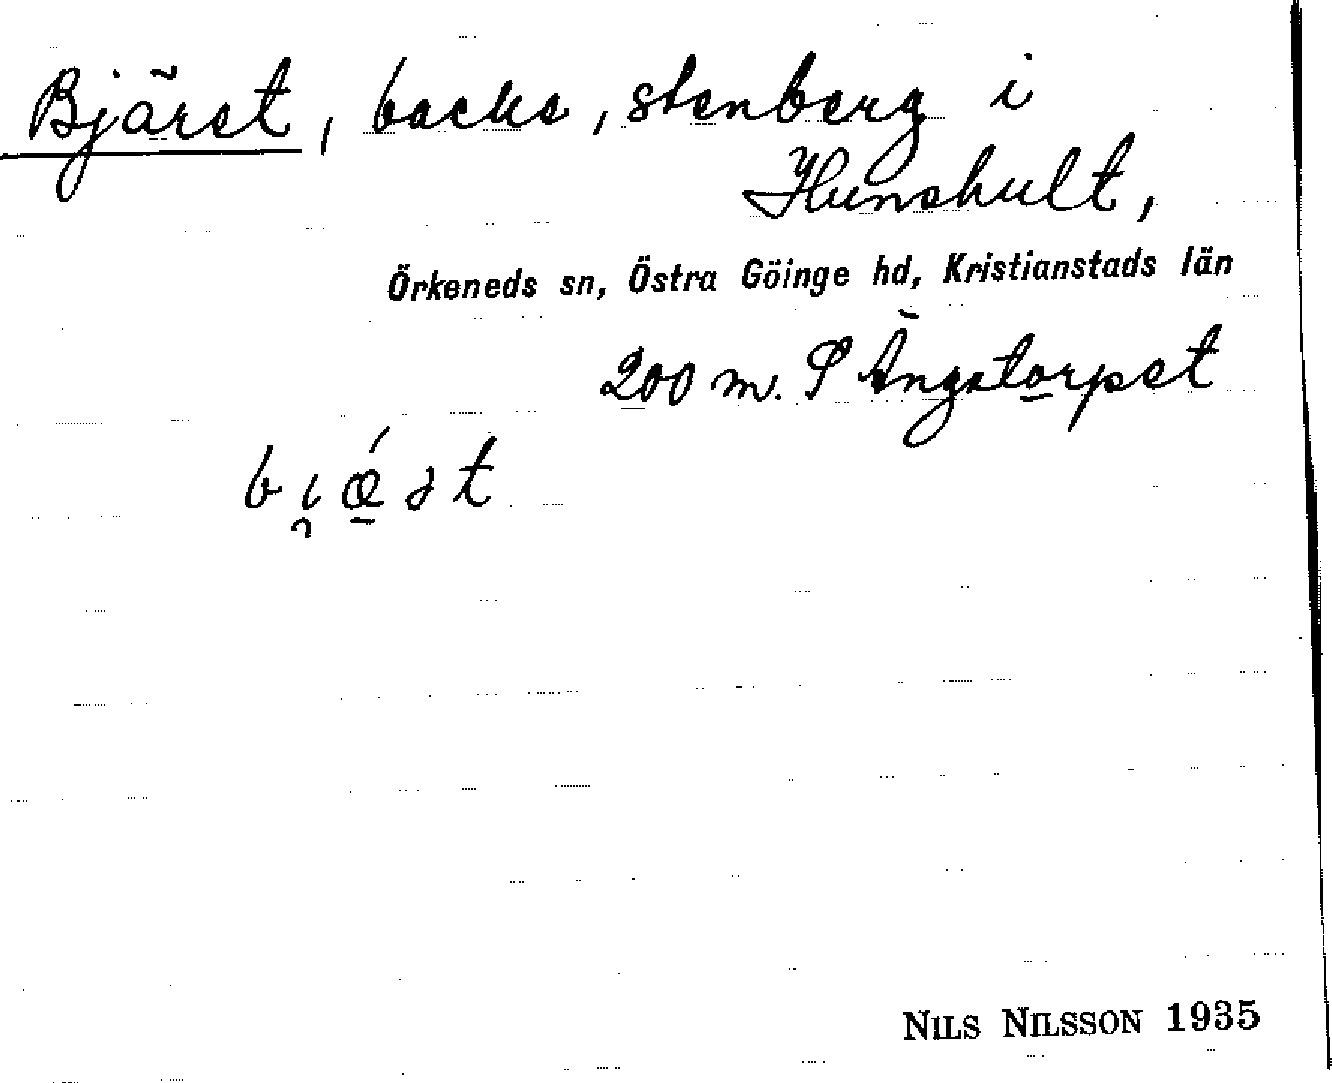 Bjäret, backe, stenberg i
Hunshult,
Örkeneds sn, Östra Göinge hd, Kristianstads län
200 m. S Ängatorpet
NILS NILSSON 1935